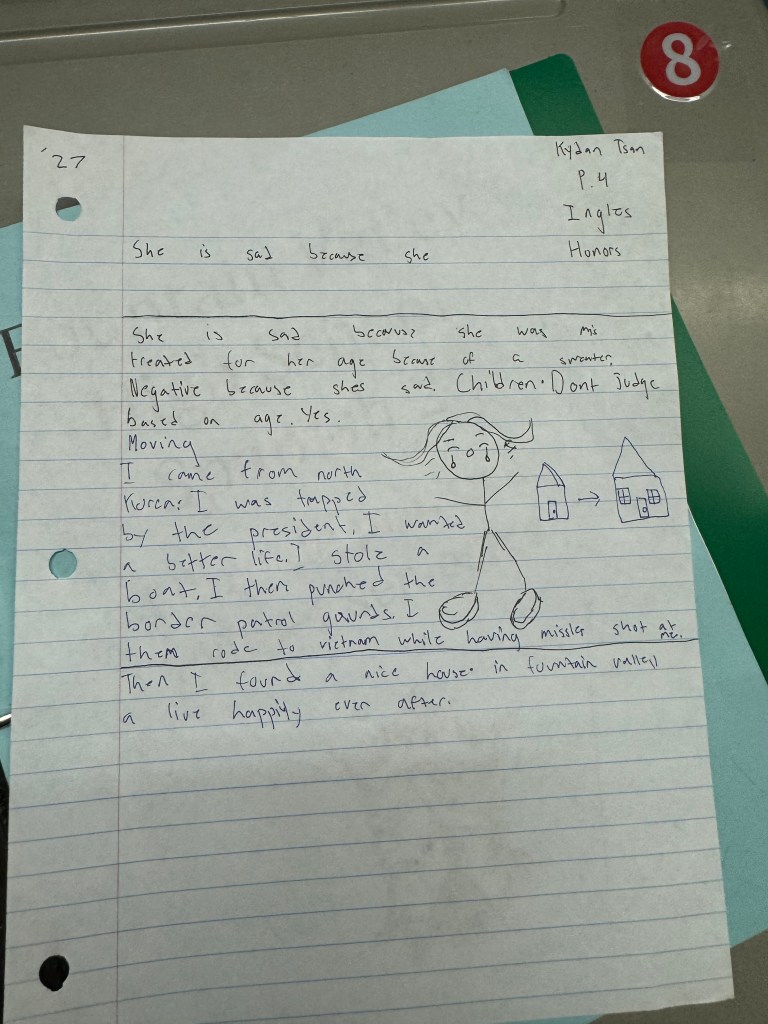 8
'27
Kydan Tsan
P.4
Ingles
Honors
She is sad because she
She is sad because she was mis
treated for her age because of a sweater.
Negative because shes sad. Children. Dont Judge
based on age. Yes.
Moving
I came from north
Korea. I was trapped
by the president. I wanted
a better life. I stole a
boat. I then punched the
border patrol gaurds. I
them rode to vietnam while having missles shot at me.
Then I found a nice house in fountain valley
a live happily ever after.